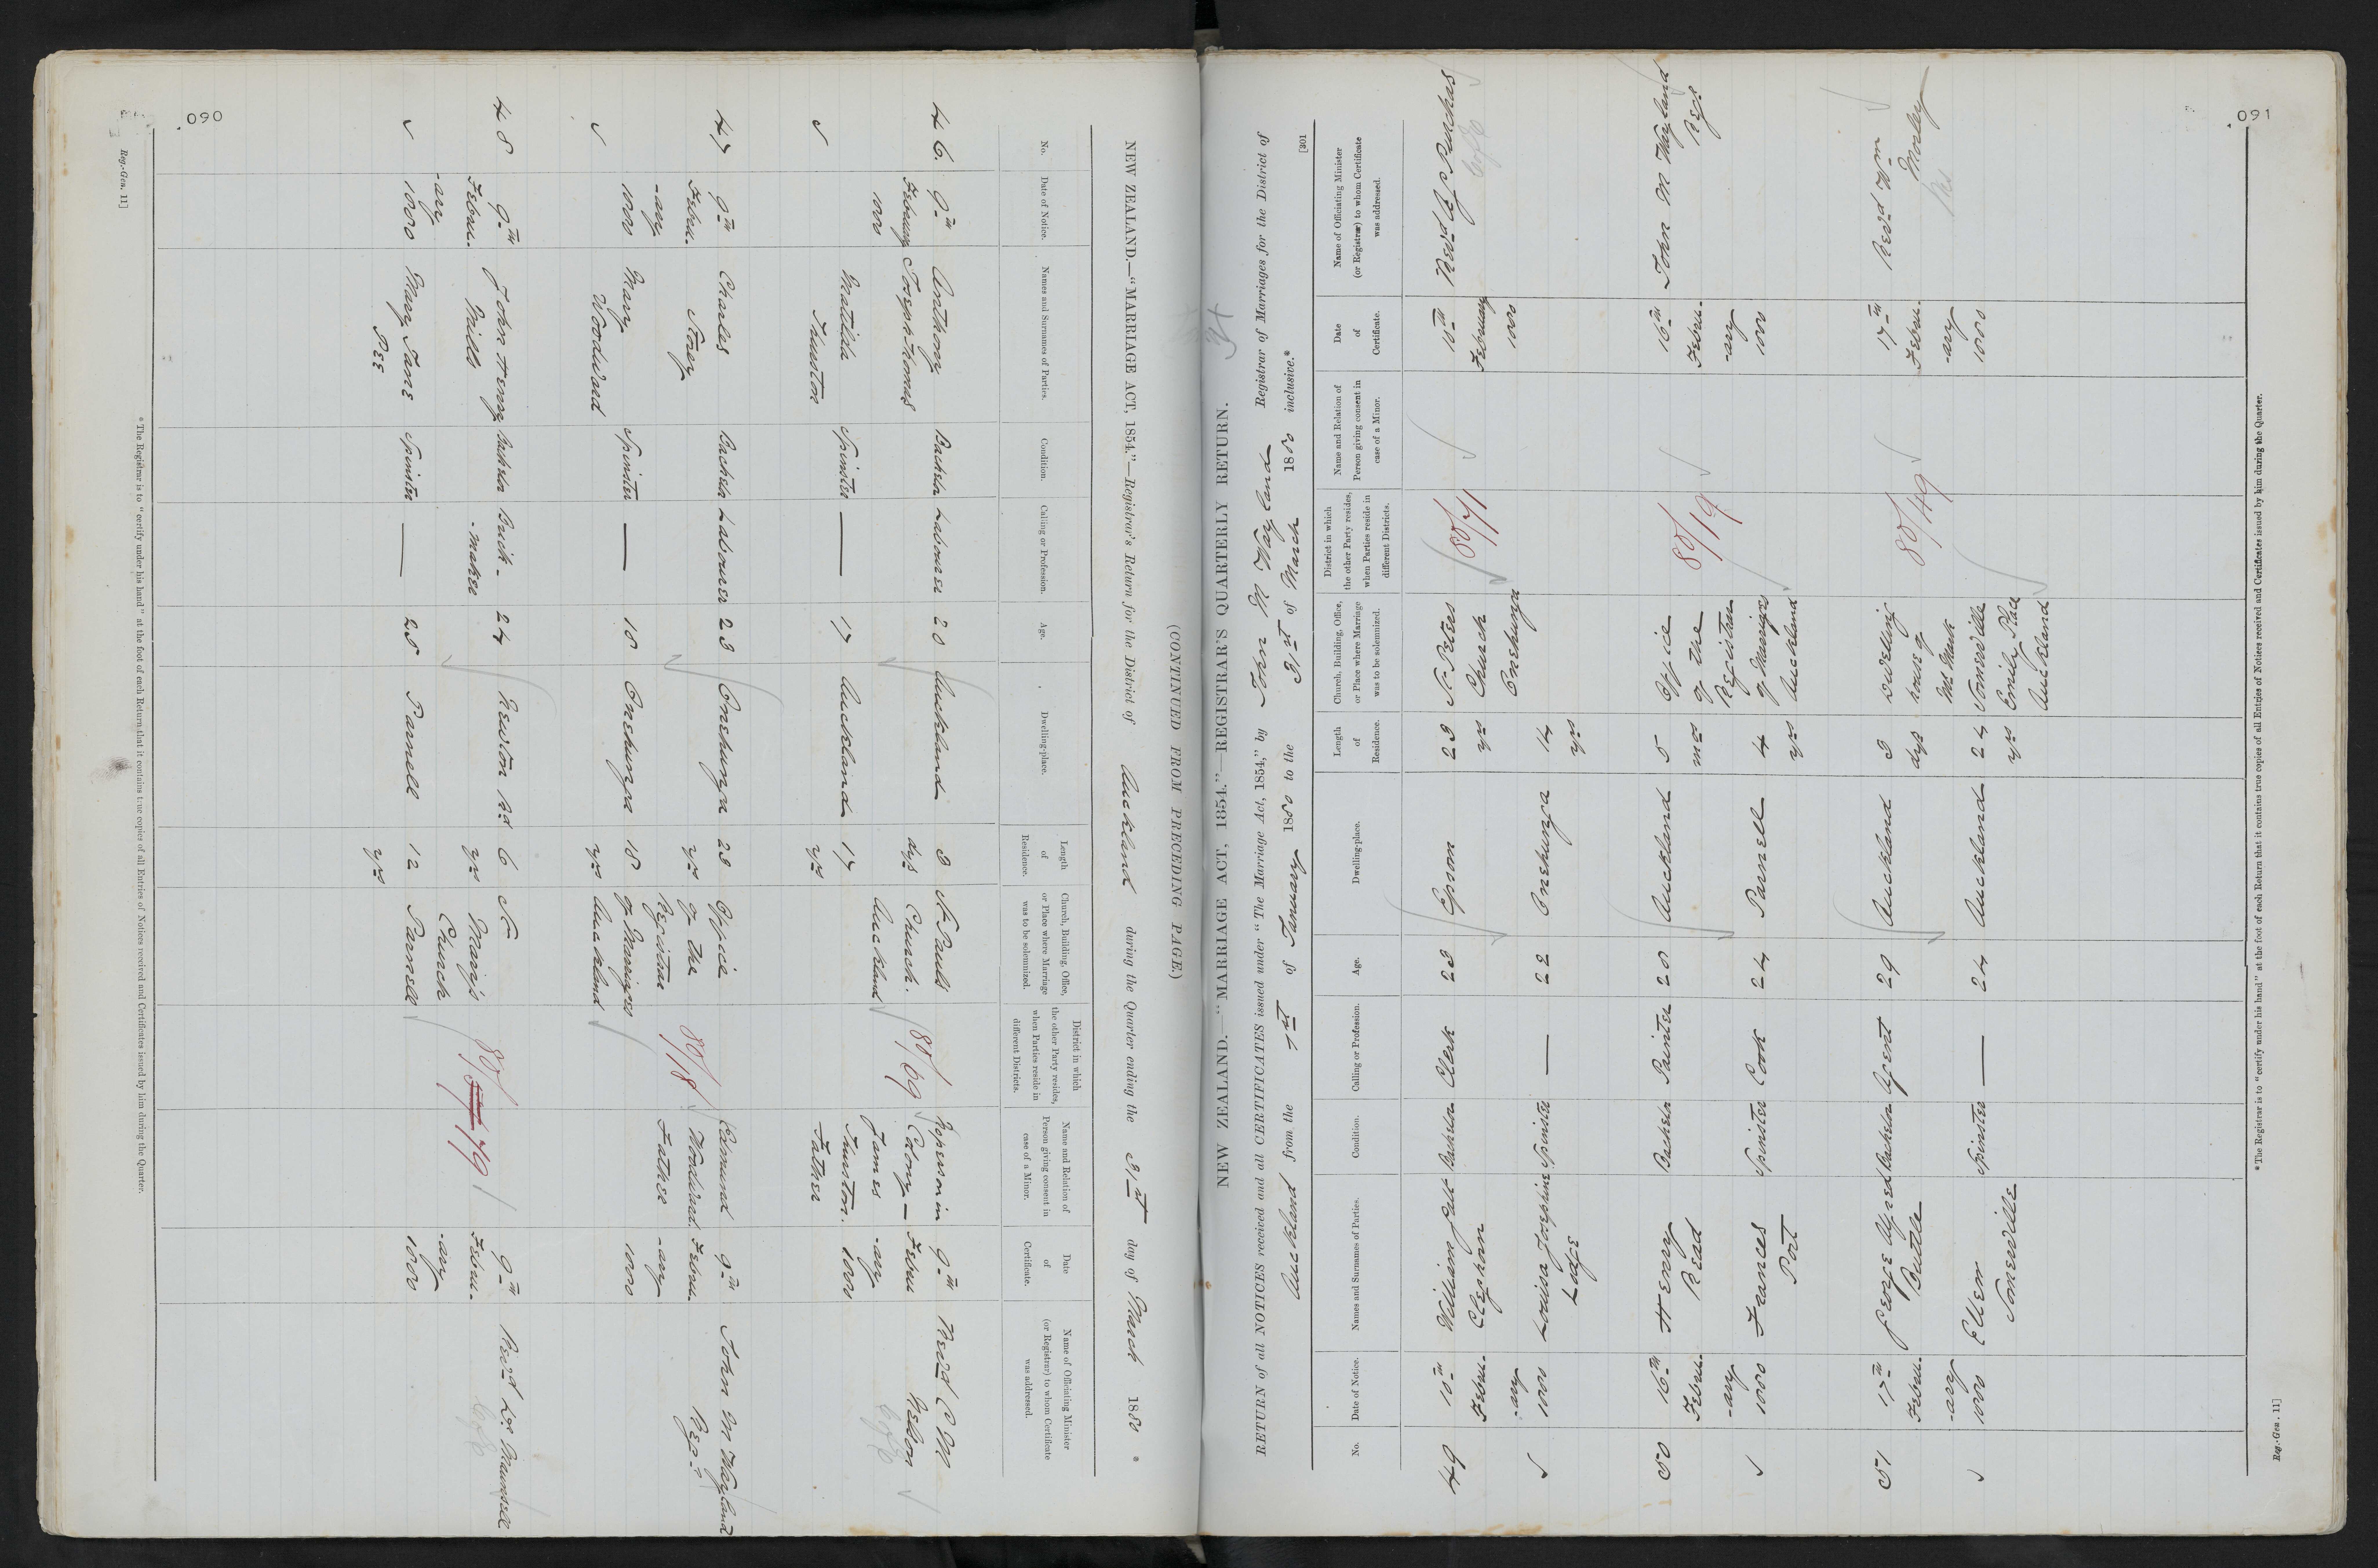 090
NEW ZEALAND.—"MARRIAGE ACT, 1854."—Registrar's Return for the District of Auckland during the Quarter ending the 31st day of March 1880 *
No.
Date of Notice.
Names and Surnames of Parties.
Condition.
Calling or Profession.
Age.
Dwelling-place.
Length of Residence.
Church, Building, Office, or Place where Marriage was to be solemnized.
District in which the other Party resides, when Parties reside in different Districts.
Name and Relation of Person giving consent in case of a Minor.
Date of Certificate.
Name of Officiating Minister (or Registrar) to whom Certificate was addressed.
46. 9th Anthony Bachelor Labourer 28 Auckland 3 St Pauls No person in 9th Revd C M
February Joseph Thomas dys Church. 80/69 Colony — Febru Nelson
1880 Auckland James -ary C of E
Matilda Spinster — 17 Auckland 17 Funston. 1880
Funston yrs Father
47 9th Charles Bachelor Labourer 23 Onehunga 23 Office Edmund 9th John M Wayland
Febru- Storey yrs of the 80/18 Woodward. Febru- Regr
-ary Registrar Father -ary
1880 Mary Spinster — 18 Onehunga 18 of Marriages 1880
Woodward yrs Auckland
48 9th John Henry Bachelor Brick- 24 Newton Rd 6 St 9th Revd R. Maunsell
Febru- Mills -maker yrs Mary's 80/79 Febru- C of E
-ary Church -ary
1880 Mary Jane Spinster — 25 Parnell 12 Parnell 1880
PEE yrs
* The Registrar is to "certify under his hand" at the foot of each Return that it contains true copies of all Entries of Notices received and Certificates issued by him during the Quarter.
Reg.-Gen. 11]
(CONTINUED FROM PRECEDING PAGE.)
34
NEW ZEALAND.—"MARRIAGE ACT, 1854."—REGISTRAR'S QUARTERLY RETURN.
RETURN of all NOTICES received and all CERTIFICATES issued under "The Marriage Act, 1854," by John M Wayland Registrar of Marriages for the District of
Auckland from the 1st of January 1880 to the 31st of March 1880 inclusive.*
[301
No.
Date of Notice.
Names and Surnames of Parties.
Condition.
Calling or Profession.
Age.
Dwelling-place.
Length of Residence.
Church, Building, Office, or Place where Marriage was to be solemnized.
District in which the other Party resides, when Parties reside in different Districts.
Name and Relation of Person giving consent in case of a Minor.
Date of Certificate.
Name of Officiating Minister (or Registrar) to whom Certificate was addressed.
49 10th William Bachelor Clerk 23 Epsom 23 St Peters 80/71 10th Revd A G Purchas
Febru- Cleghorn yrs Church February C of E
-ary Onehunga 1880
1880 Louisa Josephine Spinster — 22 Onehunga 14
Lodge yrs
50 16th Henry Bachelor Painter 28 Auckland 5 Office 16th John M Wayland
Febru- Read ms of the 80/19 Febru- Regr
-ary Registrar -ary
1880 Frances Spinster Cook 24 Parnell 4 of Marriages 1880
Port yrs Auckland
51 17th George Alfred Bachelor Agent 29 Auckland 3 Dwelling 17th Revd Wm
Febru- Buttle dys house of 80/49 Febru- Morley
-ary Mr Mark -ary
1880 Ellen Spinster — 24 Auckland 24 Somerville 1880
Somerville yrs Emily Place
Auckland
* The Registrar is to "certify under his hand" at the foot of each Return that it contains true copies of all Entries of Notices received and Certificates issued by him during the Quarter.
Reg.-Gen. 11]
091